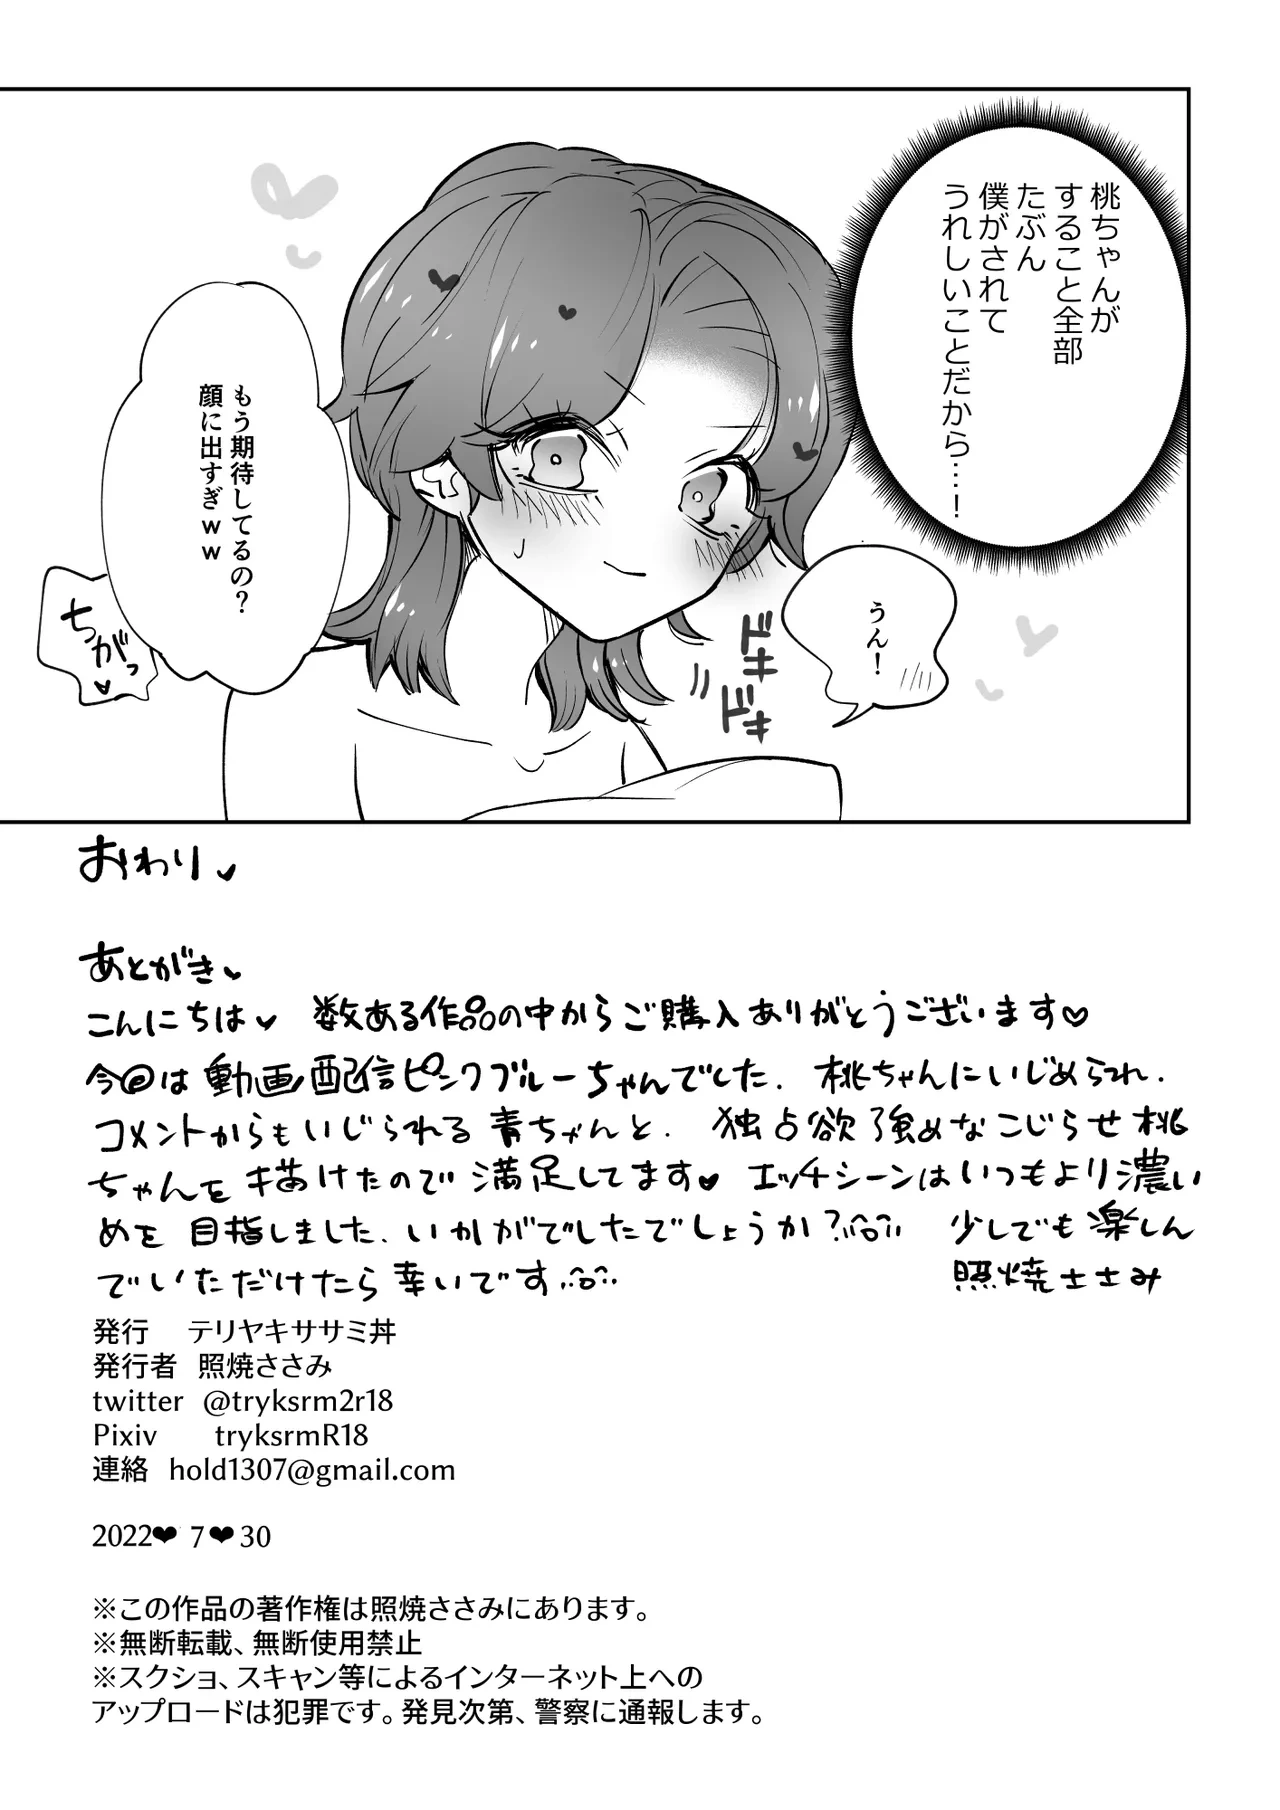 桃ちゃんが
すること全部
たぶん
僕がされて
うれしいことだから…！
うん！
ドキ
ドキ
もう期待してるの？
顔に出すぎｗｗ
ちがっ♥
おわり♥
あとがき♥
こんにちは♥ 数ある作品の中からご購入ありがとうございます♡
今回は動画配信ピンクブルーちゃんでした. 桃ちゃんにいじめられ.
コメントからもいじられる青ちゃんと. 独占欲強めなこじらせ桃
ちゃんを描けたので満足してます♥ エッチシーンはいつもより濃い
めを目指しました. いかがでしたでしょうか？ 少しでも楽しん
でいただけたら幸いです
照焼ささみ
発行 テリヤキササミ丼
発行者 照焼ささみ
twitter @tryksrm2r18
Pixiv tryksrmR18
連絡 hold1307@gmail.com
2022❤ 7❤30
※この作品の著作権は照焼ささみにあります。
※無断転載、無断使用禁止
※スクショ、スキャン等によるインターネット上への
アップロードは犯罪です。発見次第、警察に通報します。